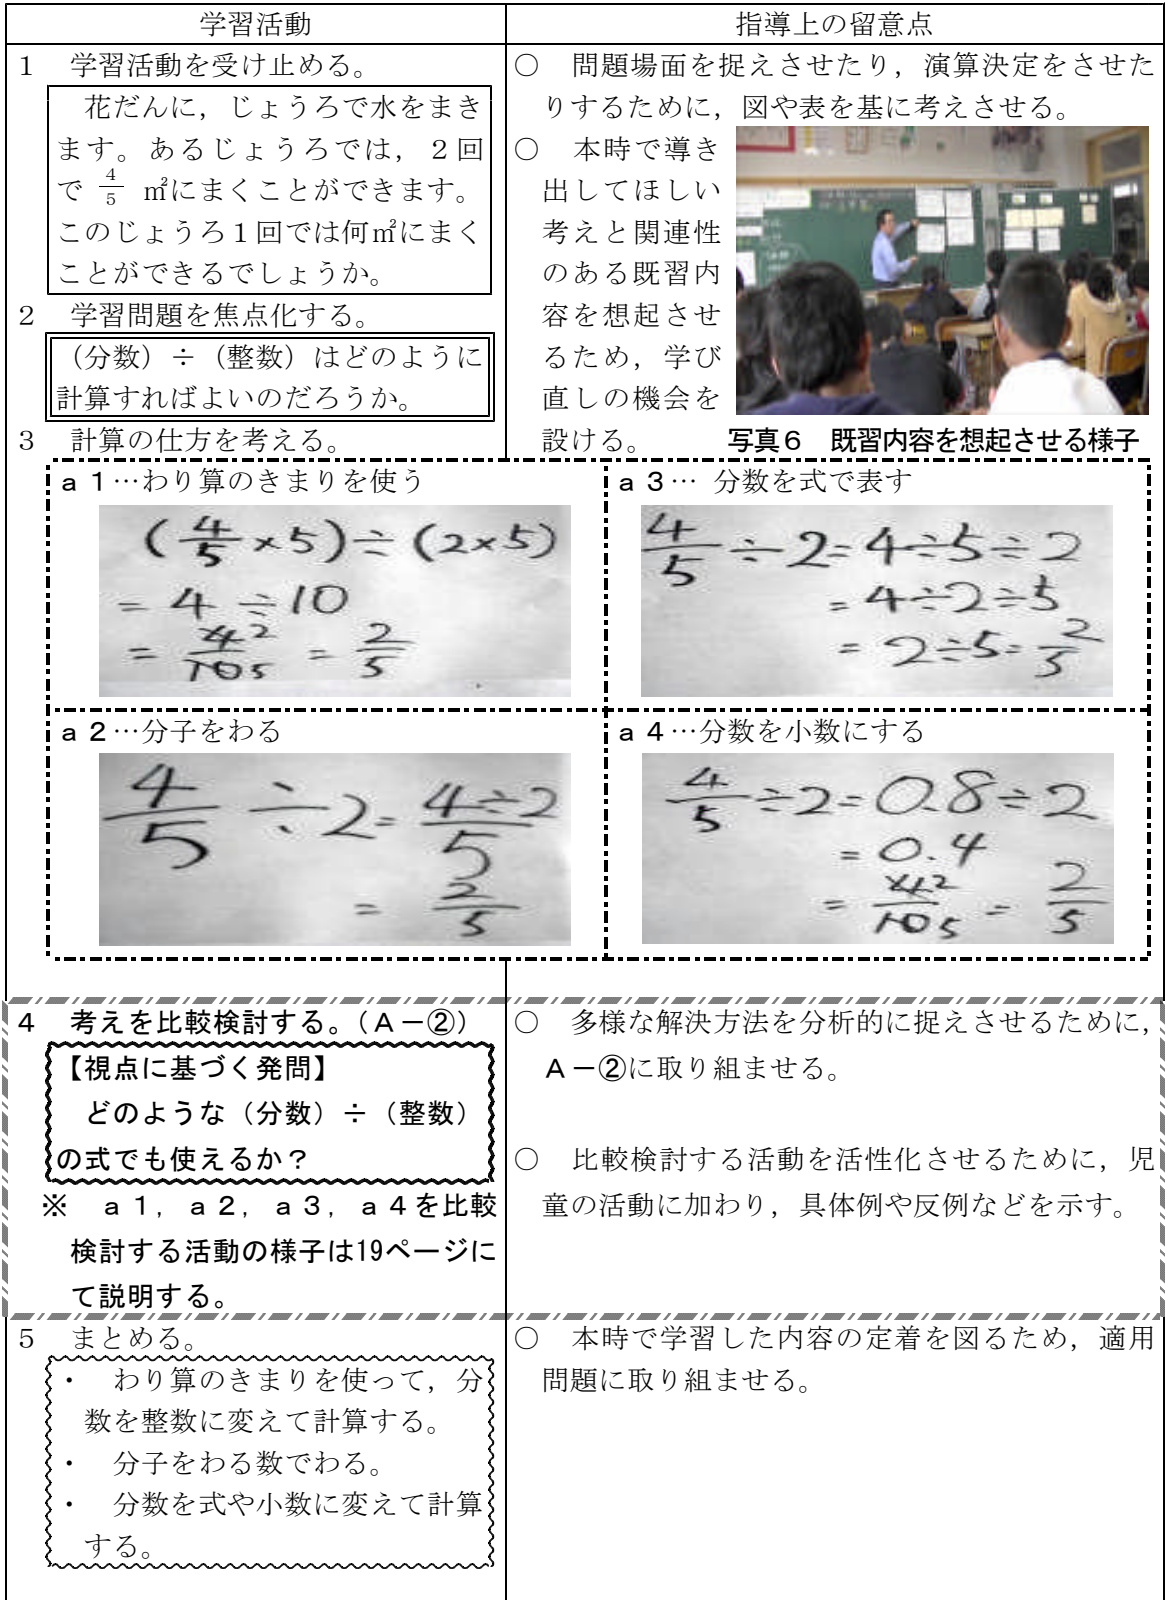 学習活動
指導上の留意点
1 学習活動を受け止める。
花だんに，じょうろで水をまき
ます。あるじょうろでは，2回
で 4/5 ㎡にまくことができます。
このじょうろ1回では何㎡にまく
ことができるでしょうか。
2 学習問題を焦点化する。
（分数）÷（整数）はどのように
計算すればよいのだろうか。
3 計算の仕方を考える。
○ 問題場面を捉えさせたり，演算決定をさせた
りするために，図や表を基に考えさせる。
○ 本時で導き
出してほしい
考えと関連性
のある既習内
容を想起させ
るため，学び
直しの機会を
設ける。
写真6 既習内容を想起させる様子
a1…わり算のきまりを使う
(4/5×5)÷(2×5)
= 4÷10
= 4 2/10 5 = 2/5
a3… 分数を式で表す
4/5÷2=4÷5÷2
=4÷2÷5
=2÷5=2/5
a2…分子をわる
4/5÷2=4÷2/5
= 2/5
a4…分数を小数にする
4/5÷2=0.8÷2
=0.4
= 4 2/10 5 = 2/5
4 考えを比較検討する。（A－②）
【視点に基づく発問】
どのような（分数）÷（整数）
の式でも使えるか？
※ a1，a2，a3，a4を比較
検討する活動の様子は19ページに
て説明する。
○ 多様な解決方法を分析的に捉えさせるために，
A－②に取り組ませる。
○ 比較検討する活動を活性化させるために，児
童の活動に加わり，具体例や反例などを示す。
5 まとめる。
・ わり算のきまりを使って，分
数を整数に変えて計算する。
・ 分子をわる数でわる。
・ 分数を式や小数に変えて計算
する。
○ 本時で学習した内容の定着を図るため，適用
問題に取り組ませる。